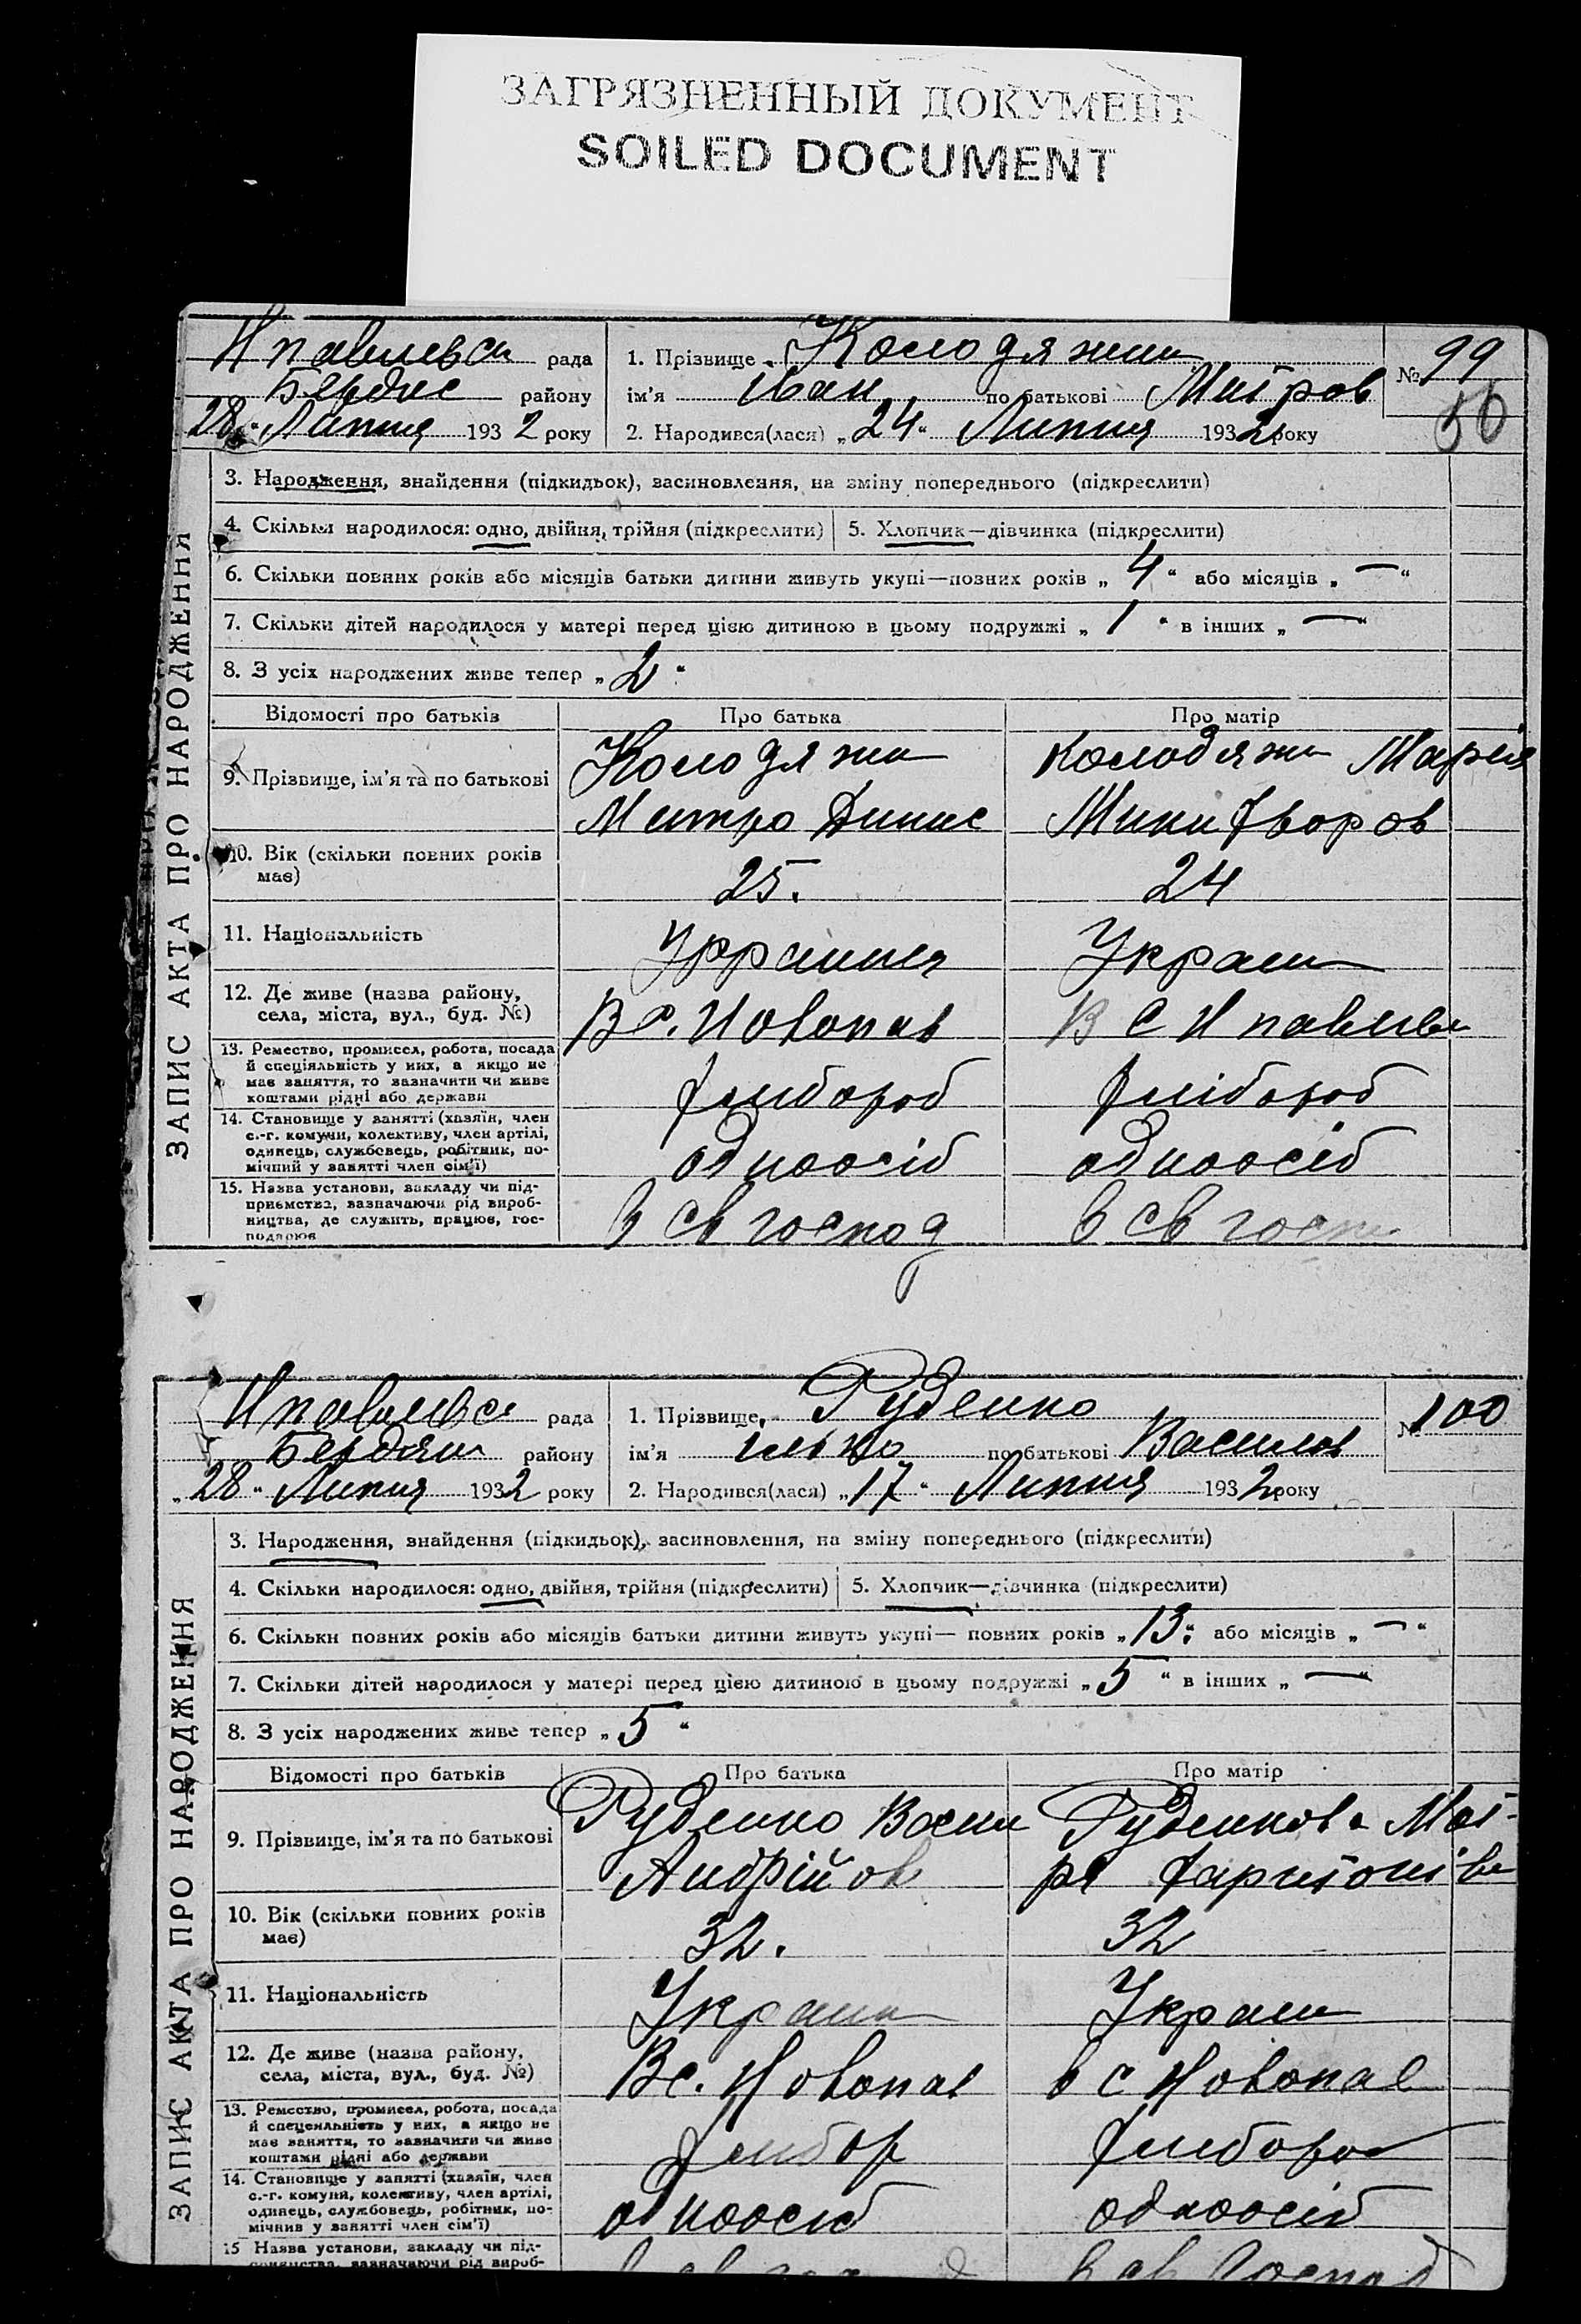 ЗАГРЯЗНЕННЫЙ ДОКУМЕНТ
SOILED DOCUMENT
Нпавлівсь рада
Бердис району
"28" Липня 1932 року
1. Прізвище Колодяжни
ім'я Іван по батькові Митров
2. Народився(лася) "24" Липня 1932 року
№ 99
50
ЗАПИС АКТА ПРО НАРОДЖЕННЯ
3. Народження, знайдення (підкидьок), засиновлення, на зміну попереднього (підкреслити)
4. Скільки народилося: одно, двійня, трійня (підкреслити) 5. Хлопчик—дівчинка (підкреслити)
6. Скільки повних років або місяців батьки дитини живуть укупі—повних років „ 4 “ або місяців „ — “
7. Скільки дітей народилося у матері перед цією дитиною в цьому подружжі „ 1 “ в інших „ — “
8. З усіх народжених живе тепер „ 2 “
Відомості про батьків Про батька Про матір
9. Прізвище, ім'я та по батькові
Колодяжн
Митро Динис
Колодяжн Марія
Микифоров
10. Вік (скільки повних років
має)
25. 24
11. Національність
Україн
12. Де живе (назва району,
села, міста, вул., буд. №)
В с. Новопав В с Нпавлів
13. Ремество, промисел, робота, посада
й спеціяльність у них, а якщо не
має заняття, то зазначити чи живе
коштами рідні або держави
хлібороб хлібороб
14. Становище у занятті (хазяїн, член
с.-г. комуни, колективу, член артілі,
одинець, службовець, робітник, по-
мічний у занятті член сім'ї)
одноосіб одноосіб
15. Назва установи, закладу чи під-
приємства, зазначаючи рід вироб-
ництва, де служить, працює, гос-
подарює
в св господ в св госп
Нпавлівс рада
Бердян району
„28“ Липня 1932 року
1. Прізвище Руденко
ім'я Ілько по батькові Василов
2. Народився(лася) „17“ Липня 1932 року
№ 100
ЗАПИС АКТА ПРО НАРОДЖЕННЯ
3. Народження, знайдення (підкидьок), засиновлення, на зміну попереднього (підкреслити)
4. Скільки народилося: одно, двійня, трійня (підкреслити) 5. Хлопчик—дівчинка (підкреслити)
6. Скільки повних років або місяців батьки дитини живуть укупі— повних років „ 13 “ або місяців „ — “
7. Скільки дітей народилося у матері перед цією дитиною в цьому подружжі „ 5 “ в інших „ — “
8. З усіх народжених живе тепер „ 5 “
Відомості про батьків Про батька Про матір
9. Прізвище, ім'я та по батькові
Руденко Васи
Андрійов
Руденкова
Харитонівн
10. Вік (скільки повних років
має)
32. 32
11. Національність
Україн Україн
12. Де живе (назва району,
села, міста, вул., буд. №)
В с. Новопав в с Новопав
13. Ремество, промисел, робота, посада
й спецеяльність у них, а якщо не
має заняття, то зазначити чи живе
коштами рідні або держави
хлібор хлібороб
14. Становище у занятті (хазяїн, член
с.-г. комуни, колективу, член артілі,
одинець, службовець, робітник, по-
мічнив у занятті член сім'ї)
одноосіб одноосіб
15 Назва установи, закладу чи під-
приємства, зазначаючи рід вироб-
в св господ